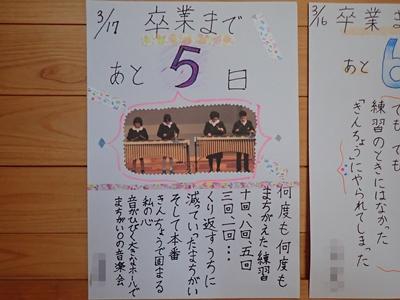 3/17
卒業まで
あと5日
何度も何度も
まちがえた練習
十回、八回、五回
三回、二回…
くり返すうちに
減っていったまちがい
そして本番
きんちょうで固まる
私の心
音がひびく大きなホールで
まちがい0の音楽会
3/16
卒業ま
あと6
でも でも
練習のときにはなかった
「きんちょう」にやられてしまった